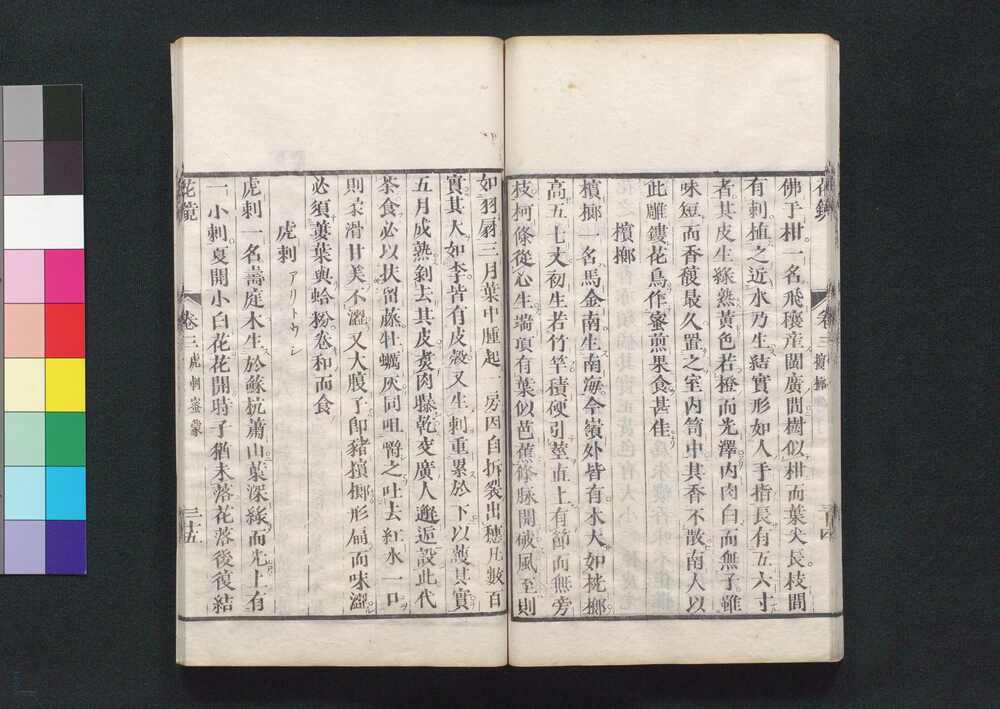 佛手柑一名飛穰産閩廣間樹似柑而葉尖長枝間
有刺植之近水乃生結實形如人手指長有五六寸
者其皮生綠熟黃色若橙而光澤內肉白而無子雖
味短而香馥最久置之室內笥中其香不散南人以
此雕鏤花鳥作蜜煎果食甚佳
檳榔
檳榔一名馬金南生南海今嶺外皆有木大如桄榔
高五七丈初生若竹竿積硬引莖直上有節而無旁
枝柯條從心生端項有葉似芭蕉條脉開破風至則
花鏡
卷三
檳榔
如羽扇三月葉中腫起一房因自拆裂出穗凡數百
實其大如李皆有皮殼又生刺重累於下以護其實
五月成熟剝去其皮煑肉曝乾交廣人邂逅設此代
茶食必以扶留藤牡蠣灰同咀嚼之吐去紅水一口
則柔滑甘美不澀又大腹子即豬檳榔形扁而味澀
必須蔞葉與蛤粉卷和而食
虎刺 アリトウシ
虎刺一名壽庭木生於蘇杭蕭山葉深綠而光上有
一小刺夏開小白花花開時子猶未落花落後復結
花鏡
卷三
虎刺 蜜蒙
三十五